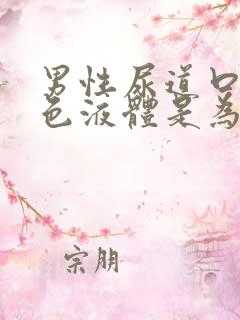 男性尿道口
色液體是為
宗朋